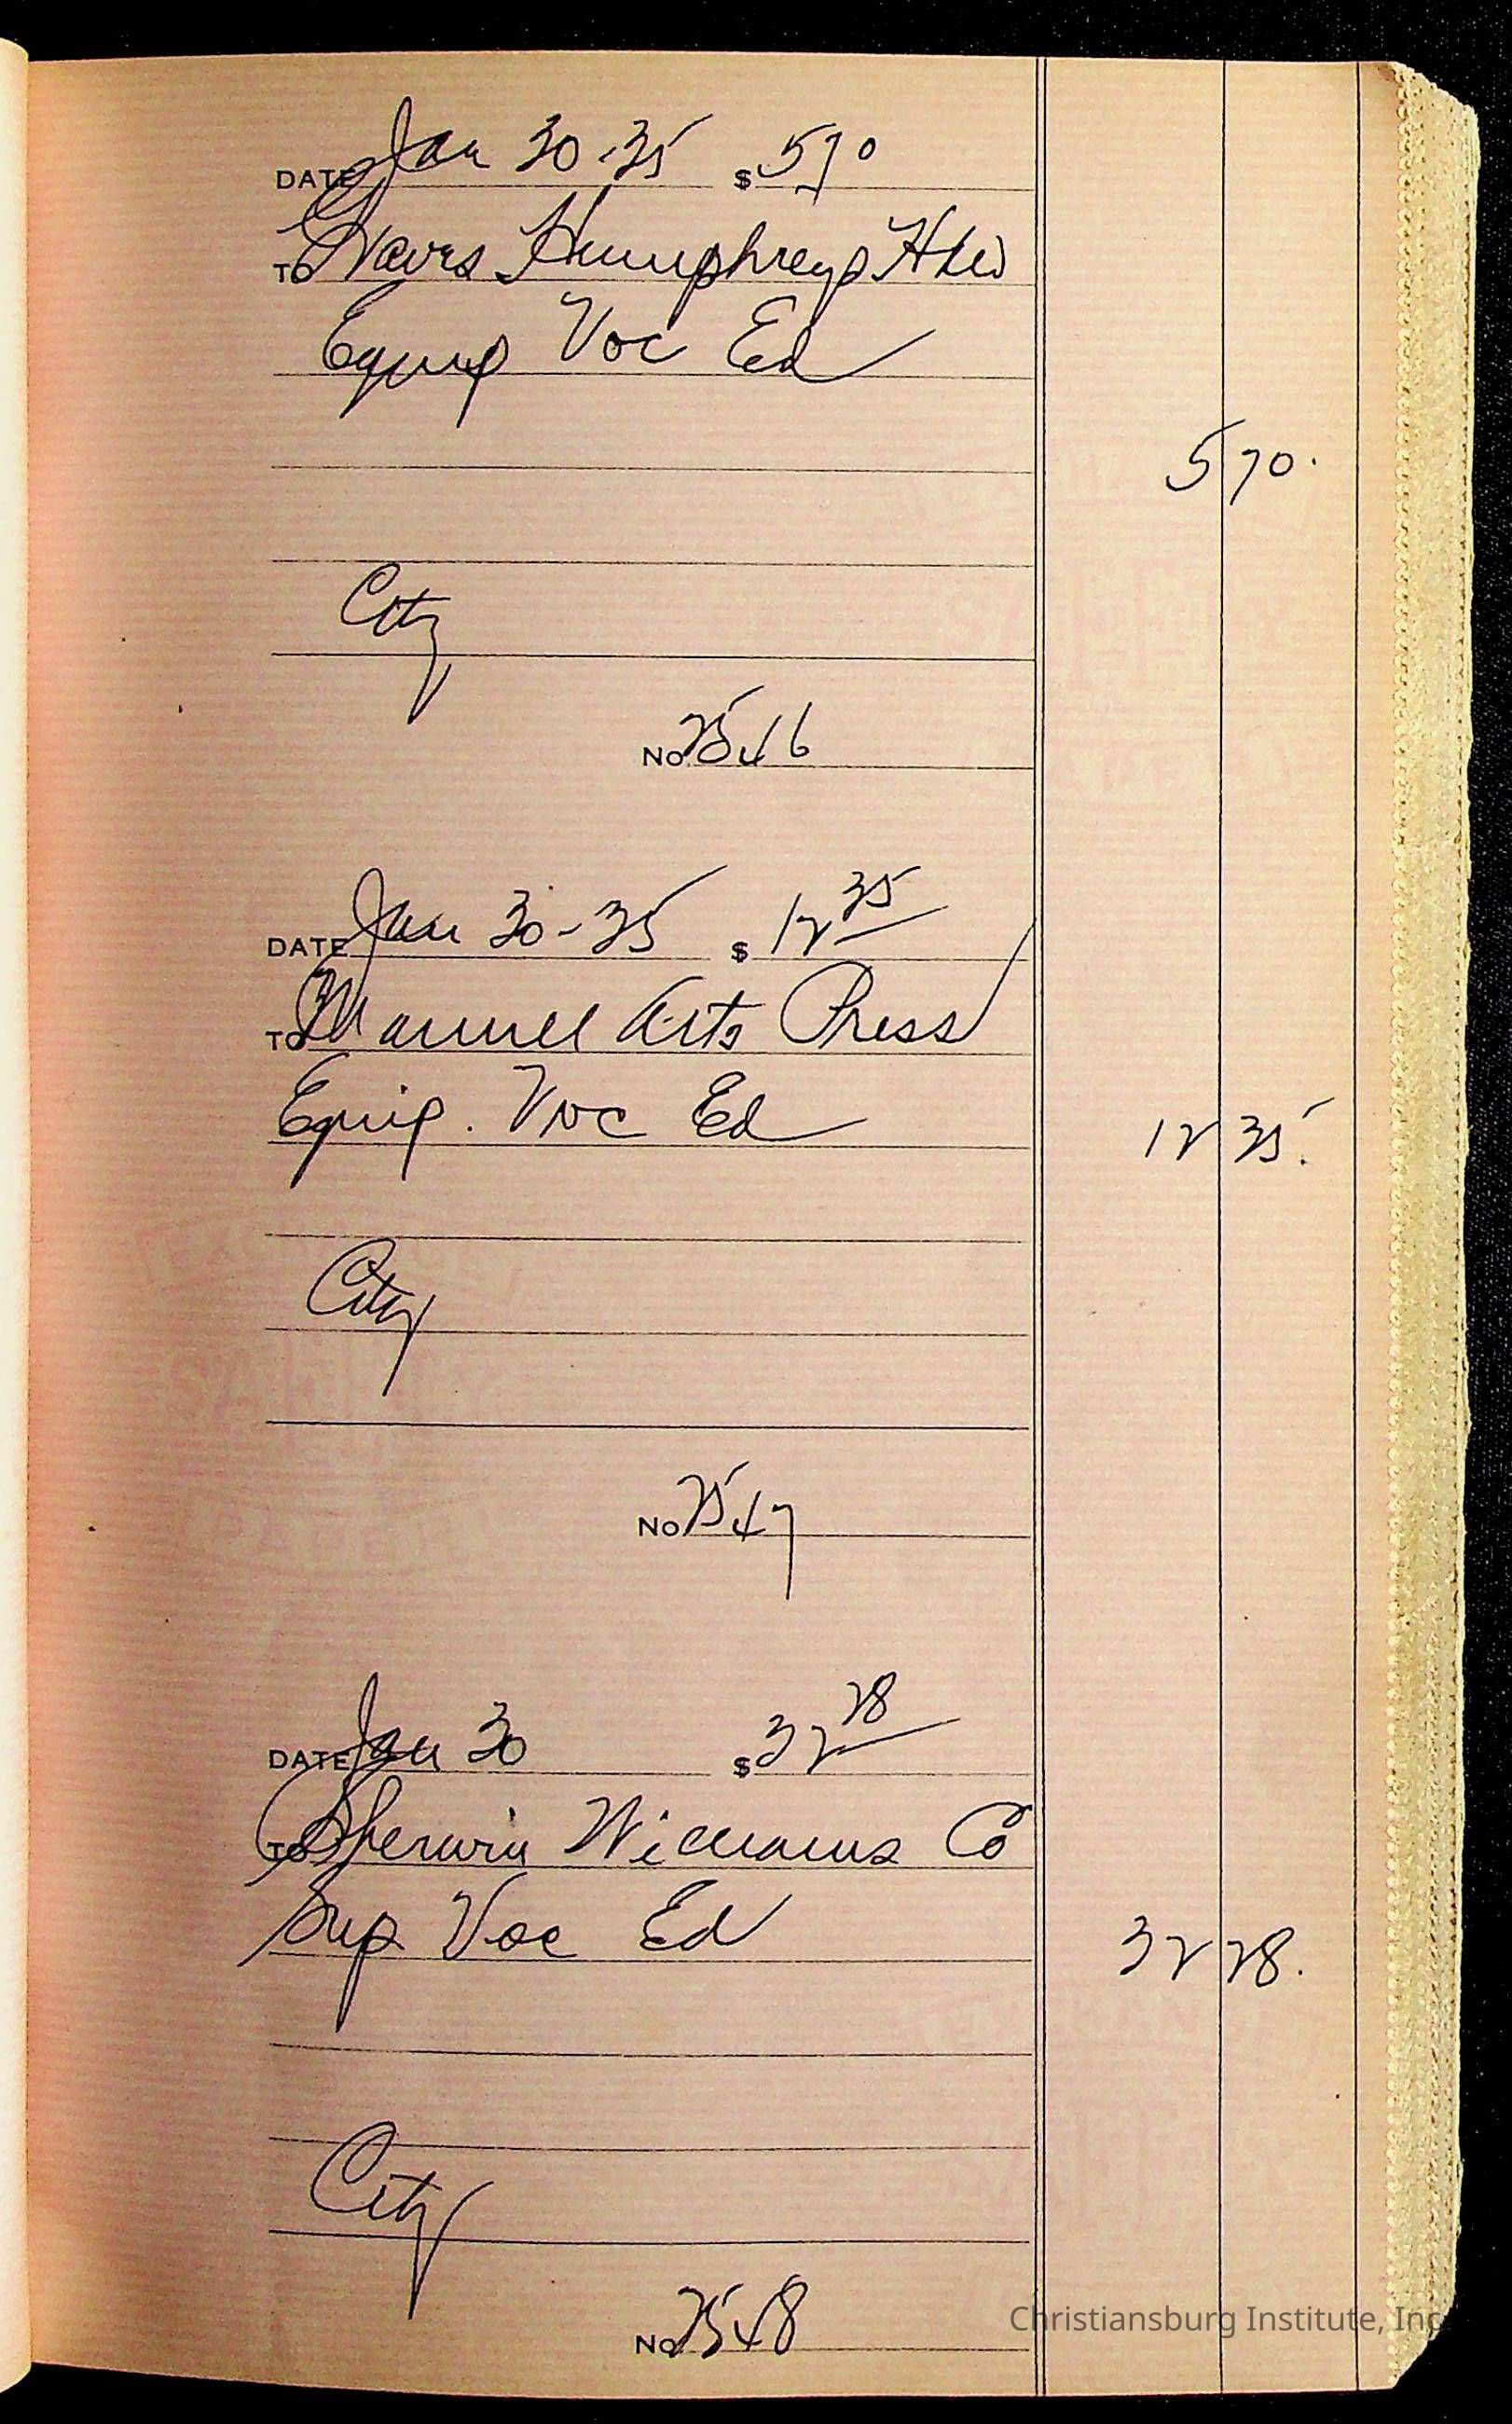 DATE Jan 30-35 $5 70
TO Humphreys
Equip Voc Ed
5 70.
City
No. 2546
DATE Jan 30-35 $12 35
TO Manuel Arts Press
Equip. Voc Ed
12 35.
City
No 2547
DATE Jan 30 $32 28
TO Sherwin Williams Co
Sup Voc Ed
32 28.
City
No 2548
Christiansburg Institute, Inc.